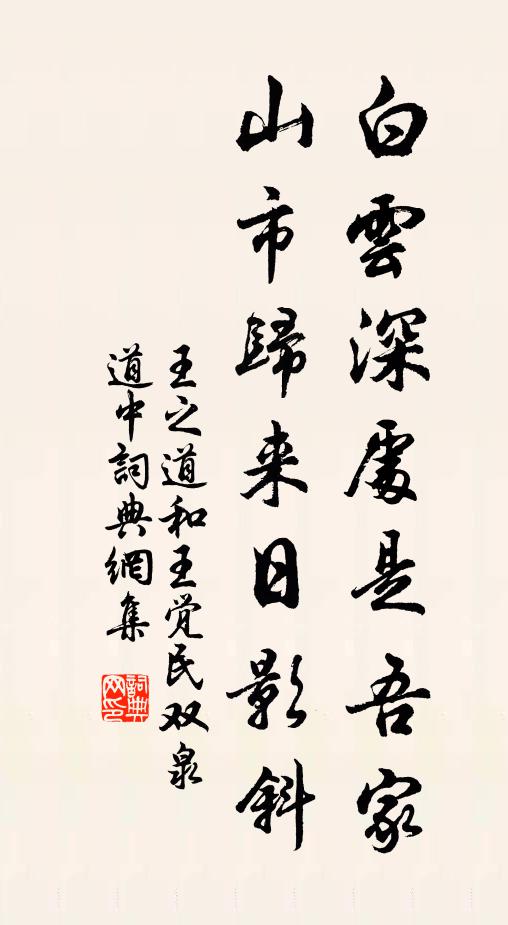 白雲深處是吾家
山市歸来日影斜
王之道和王觉民双泉
道中詞典網集
詞典
网印